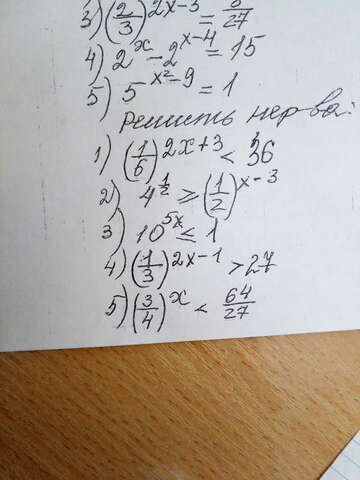 3) (2/3)^(2x-3) = 8/27
4) 2^x - 2^(x-4) = 15
5) 5^(x²-9) = 1
Решить нер-ва:
1) (1/6)^(2x+3) < 36
2) 4^(1/2) ≥ (1/2)^(x-3)
3) 10^(5x) ≤ 1
4) (1/3)^(2x-1) > 27
5) (3/4)^x < 64/27